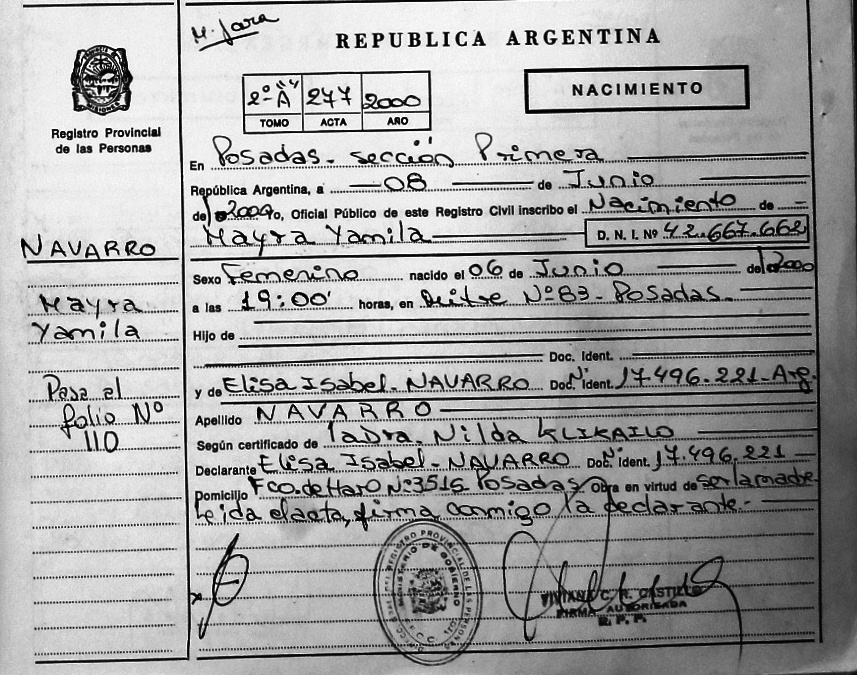 M. Jara
REPUBLICA ARGENTINA
PROVINCIA DE
MISIONES
Registro Provincial
de las Personas
2º "A" 277 2000
TOMO ACTA AÑO
NACIMIENTO
En Posadas - sección Primera
República Argentina, a 08 de Junio
de 2000, Oficial Público de este Registro Civil inscribo el Nacimiento de
Mayra Yamila D. N. I. Nº 42.667.662
NAVARRO
Mayra
Yamila
Pasa al
folio Nº
110
Sexo Femenino nacido el 06 de Junio de 2000
a las 19:00' horas, en Mitre Nº 83 - Posadas -
Hijo de
Doc. Ident.
y de Elisa Isabel - NAVARRO Doc. Nº Ident. 17.496.221 - Arg.
Apellido NAVARRO
Según certificado de la Dra. Nilda KLIKAILO
Declarante Elisa Isabel - NAVARRO Doc. Nº Ident. 17.496.221
Domicilio Fco. de Haro Nº 3516 Posadas Obra en virtud de ser la madre -
Leida el acta, firma conmigo la declarante -
REGISTRO PROVINCIAL DE LAS PERSONAS
MINISTERIO DE GOBIERNO
VIVIANA C. R. CASTILLO
FIRMA AUTORIZADA
R. P. P.